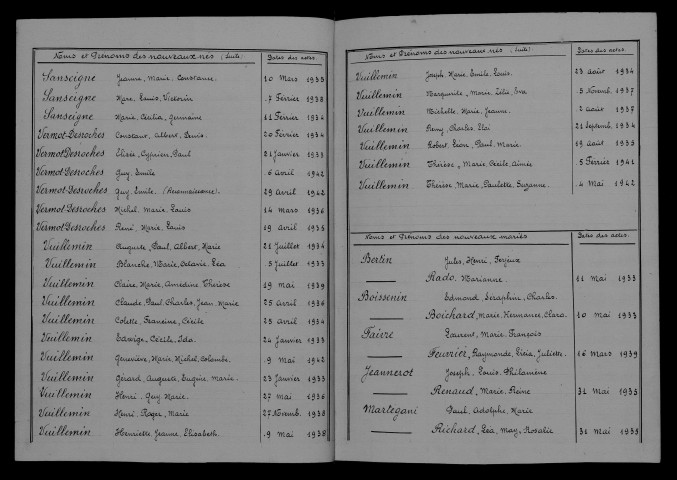 Noms et Prénoms des nouveaux nés (suite) Dates des actes.
Sanseigne Jeanne, Marie, Constance 10 Mars 1933
Sanseigne Marc, Louis, Victorin .7 Février 1938
Sanseigne Marie, Cécilia, Germaine 11 Février 1934
Vermot-Desroches Constant, Albert, Denis. 20 Février 1934
Vermot-Desroches Elisée, Cyprien, Paul 21 Janvier 1933
Vermot-Desroches Guy, Emile 6 avril 1942
Vermot-Desroches Guy, Emile (Reconnaissance) 29 avril 1942
Vermot-Desroches Michel, Marie, Louis 14 mars 1936
Vermot-Desroches René, Marie, Louis 19 avril 1935
Vuillemin Auguste, Paul, Albert, Marie 21 Juillet 1934
Vuillemin Blanche, Marie, Octavie, Léa 5 Juillet 1933
Vuillemin Claire, Marie, Amédine, Thérèse 19 mai 1939
Vuillemin Claude, Paul, Charles, Jean, Marie 25 avril 1936
Vuillemin Colette, Francine, Cécile 25 avril 1934
Vuillemin Edwige, Cécile, Ida. 24 Janvier 1933
Vuillemin Geneviève, Marie, Michel, Colombe. .9 mai 1942
Vuillemin Gérard, Auguste, Eugène, Marie. 23 Janvier 1933
Vuillemin Henri, Guy, Marie. 27 mai 1936
Vuillemin Henri, Roger, Marie 27 Novemb. 1938
Vuillemin Henriette, Jeanne, Elisabeth. .9 mai 1938
Noms et Prénoms des nouveaux nés (suite) Dates des actes.
Vuillemin Joseph, Marie, Emile, Louis. 23 août 1934
Vuillemin Marguerite, Marie, Zélia, Eva 5 Novemb. 1937
Vuillemin Michelle, Marie, Jeanne. 2 août 1937
Vuillemin Rémy, Charles, Eloi 21 Septemb. 1934
Vuillemin Robert, Léon, Paul, Marie. 19 août 1935
Vuillemin Thérèse, Marie, Cécile, Aimée 5 Février 1941
Vuillemin Thérèse, Marie, Paulette, Suzanne. .4 mai 1942
Noms et Prénoms des nouveaux mariés Dates des actes.
Bertin Jules, Henri,
Rado, Marianne. 11 mai 1933
Boissenin Edmond, Séraphin, Charles.
Boichard, Marie, Hermance, Clara. 10 mai 1933
Faivre Laurent, Marie, François
Feuvrier, Raymonde, Lidia, Juliette. 16 mars 1939
Jeannerot Joseph, Louis, Philomène
Renaud, Marie, Reine 31 mai 1935
Martegani Paul, Adolphe, Marie
Richard, Léa, May, Rosalie 31 mai 1935